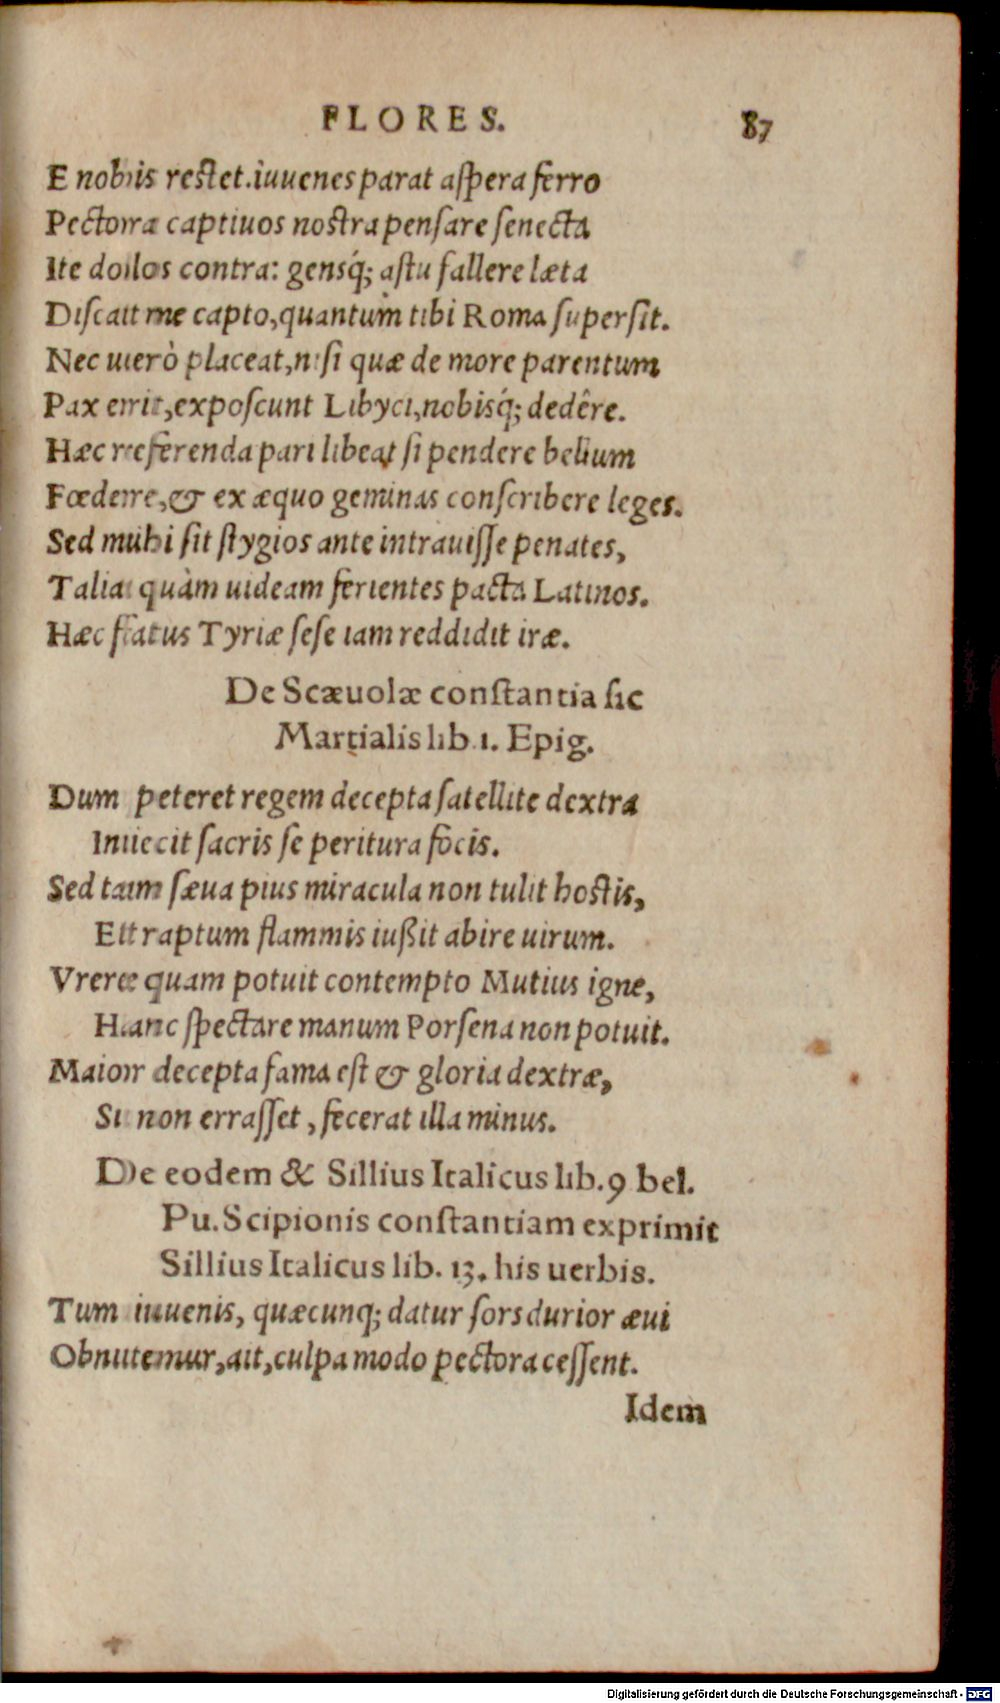 FLORES. 87
E nobis restet. iuuenes parat aspera ferro
Pectora captiuos nostra pensare senecta
Ite dolos contra: gensq́; astu fallere læta
Discat me capto, quantum tibi Roma supersit.
Nec uerò placeat, nisi quæ de more parentum
Pax erit, exposcunt Libyci, nobisq́; dedêre.
Hæc referenda pari libeat si pendere bellum
Fœdere, & ex æquo geminas conscribere leges.
Sed mihi sit stygios ante intrauisse penates,
Talia quàm uideam ferientes pacta Latinos.
Hæc fatus Tyriæ sese iam reddidit iræ.
De Scæuolæ constantia sic
Martialis lib. 1. Epig.
Dum peteret regem decepta satellite dextra
Iniecit sacris se peritura focis.
Sed tam sæua pius miracula non tulit hostis,
Et raptum flammis iußit abire uirum.
Vrere quam potuit contempto Mutius igne,
Hanc spectare manum Porsena non potuit.
Maior decepta fama est & gloria dextræ,
Si non errasset, fecerat illa minus.
De eodem & Sillius Italicus lib. 9 bel.
Pu. Scipionis constantiam exprimit
Sillius Italicus lib. 13. his uerbis.
Tum iuuenis, quæcunq; datur sors durior æui
Obnitemur, ait, culpa modo pectora cessent.
Idem
Digitalisierung gefördert durch die Deutsche Forschungsgemeinschaft - DFG